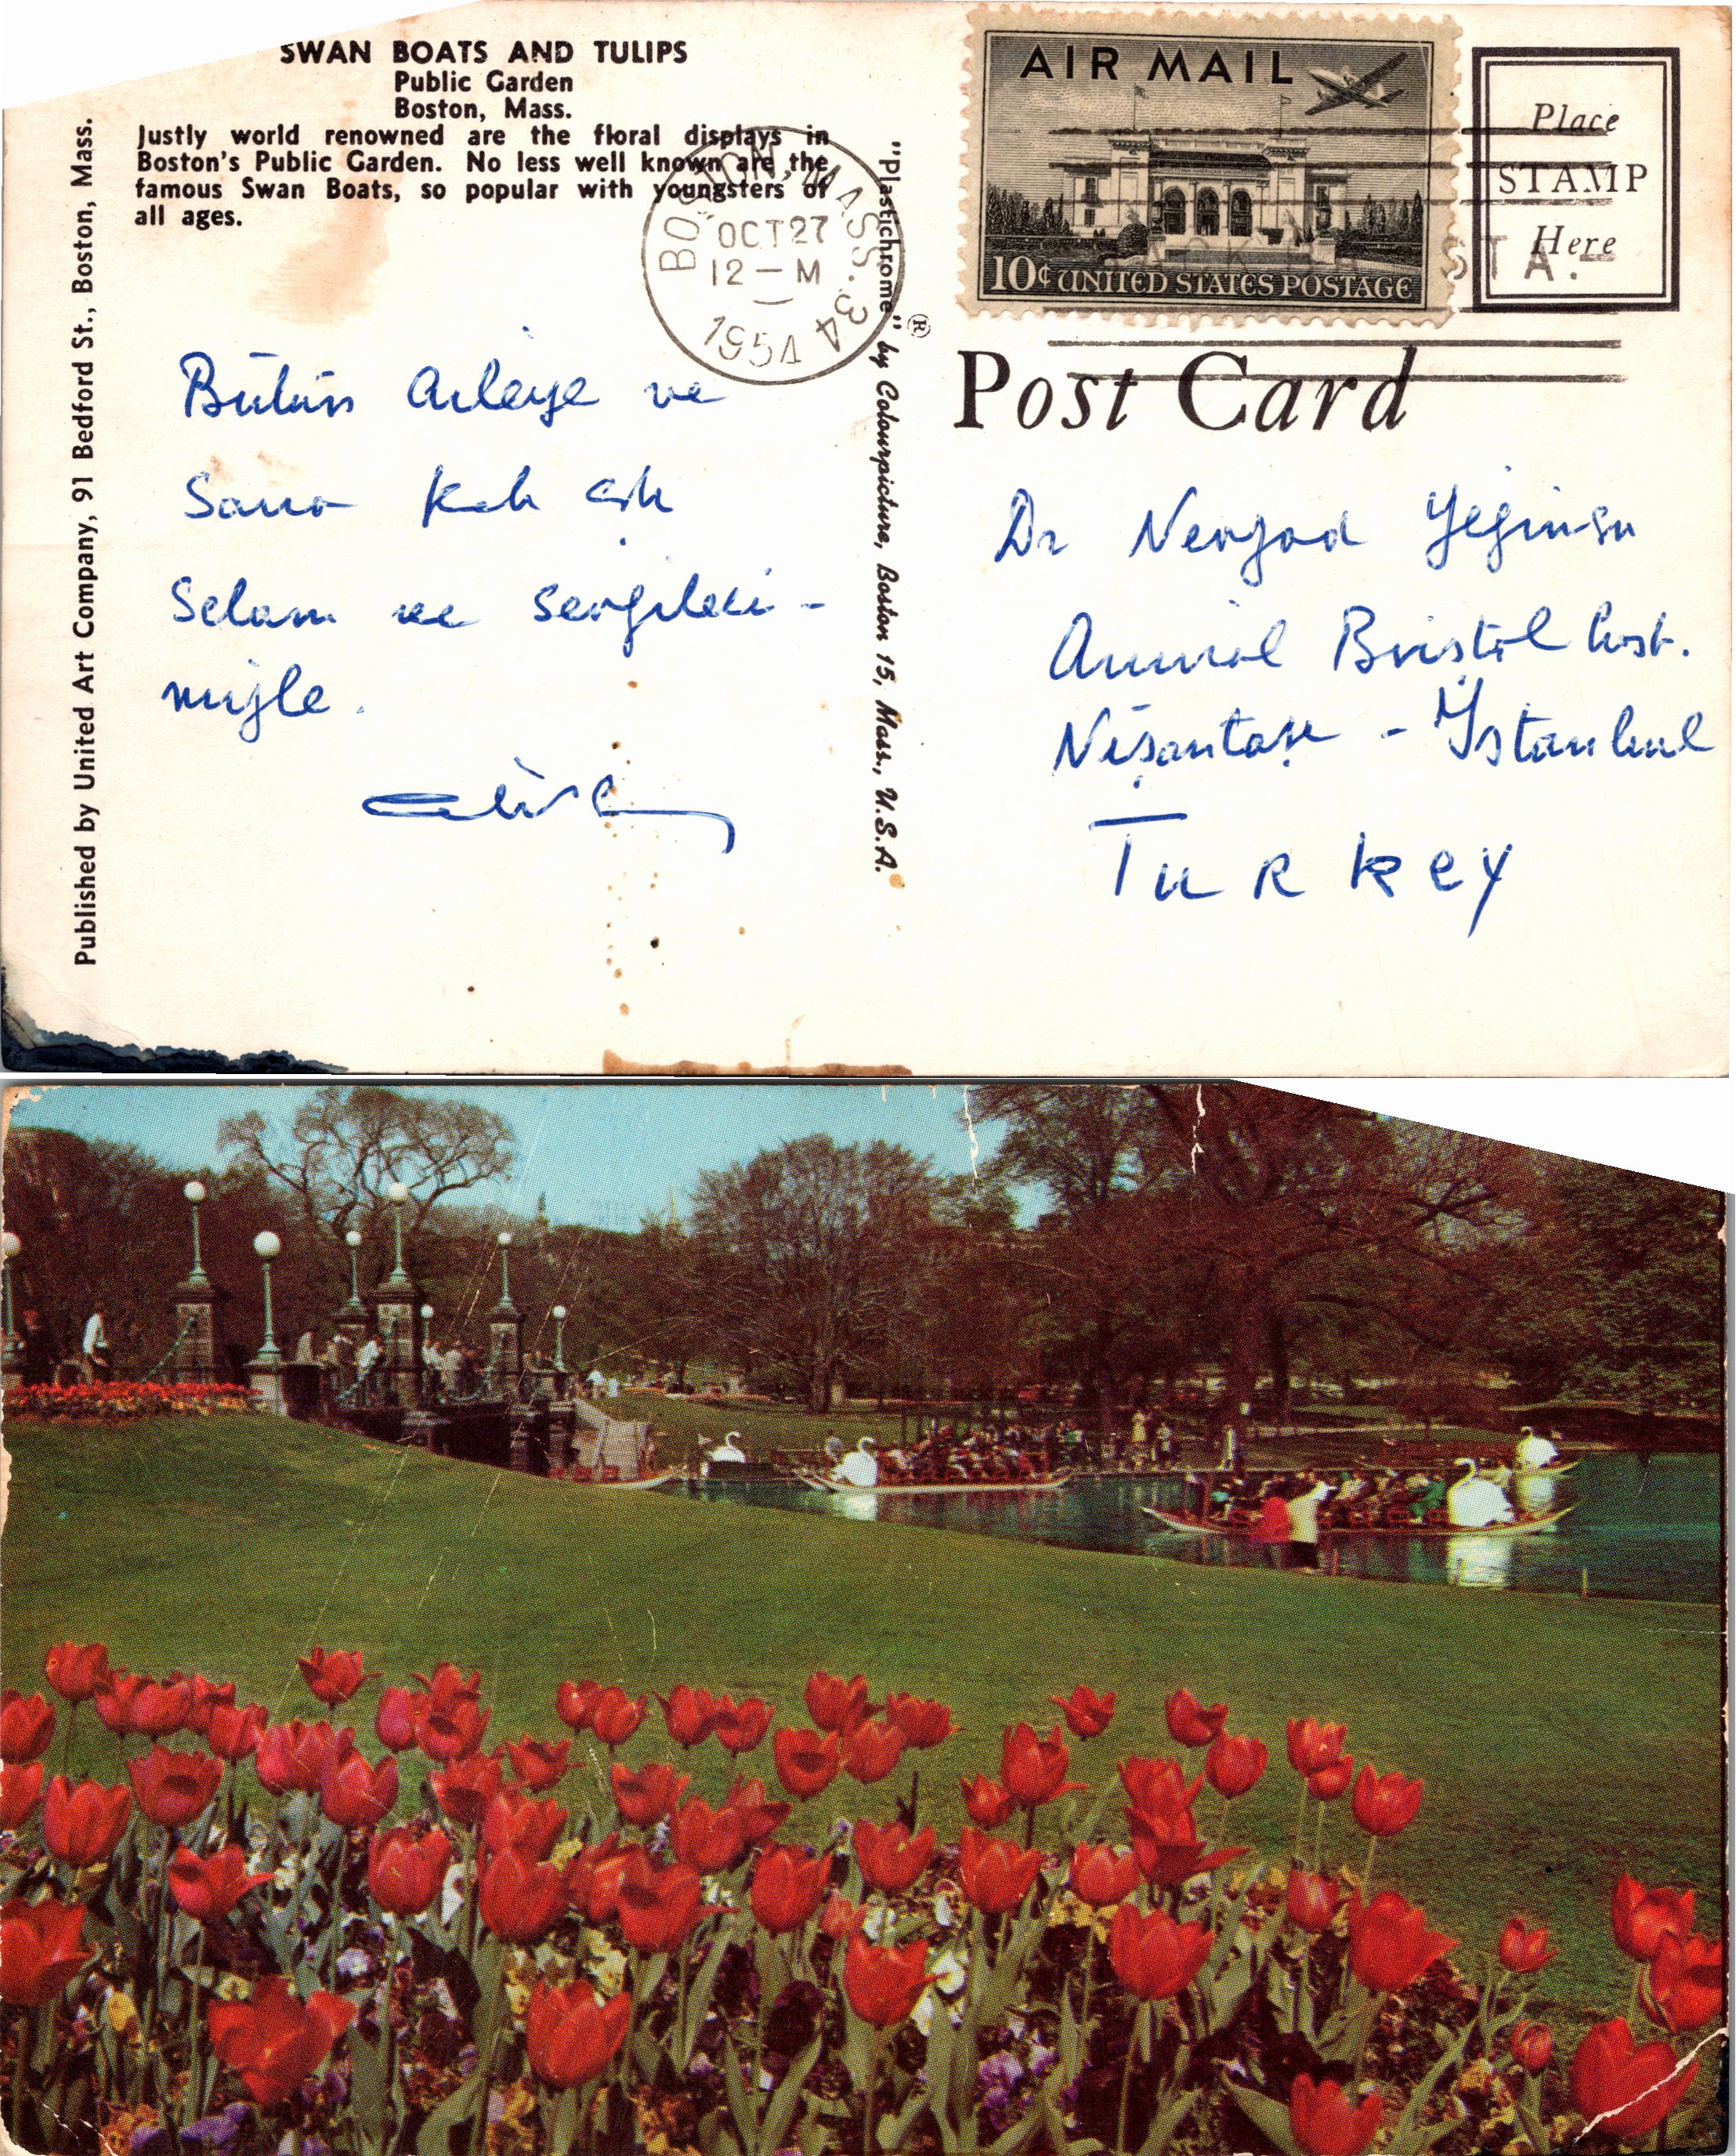 SWAN BOATS AND TULIPS
Public Garden
Boston, Mass.
Justly world renowned are the floral displays in
Boston's Public Garden. No less well known are the
famous Swan Boats, so popular with youngsters of
all ages.
Published by United Art Company, 91 Bedford St., Boston, Mass.
BOSTON, MASS. 34
OCT 27
12 — M
1954
"Plastichrome" ® by Colourpicture, Boston 15, Mass., U.S.A.
AIR MAIL
10¢ UNITED STATES POSTAGE
Place
STAMP
Here
STA.
Post Card
Bütün aileye ve
Sana
Selam ve sevgileri-
mizle.
Dr Yeğinsu
Amiral Bristol hast.
Nişantaşı - İstanbul
TURKEY